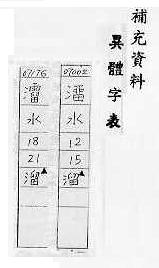 補充資料
異體字表
澑
水
12
15
溜▲
07176
水
18
21
溜▲